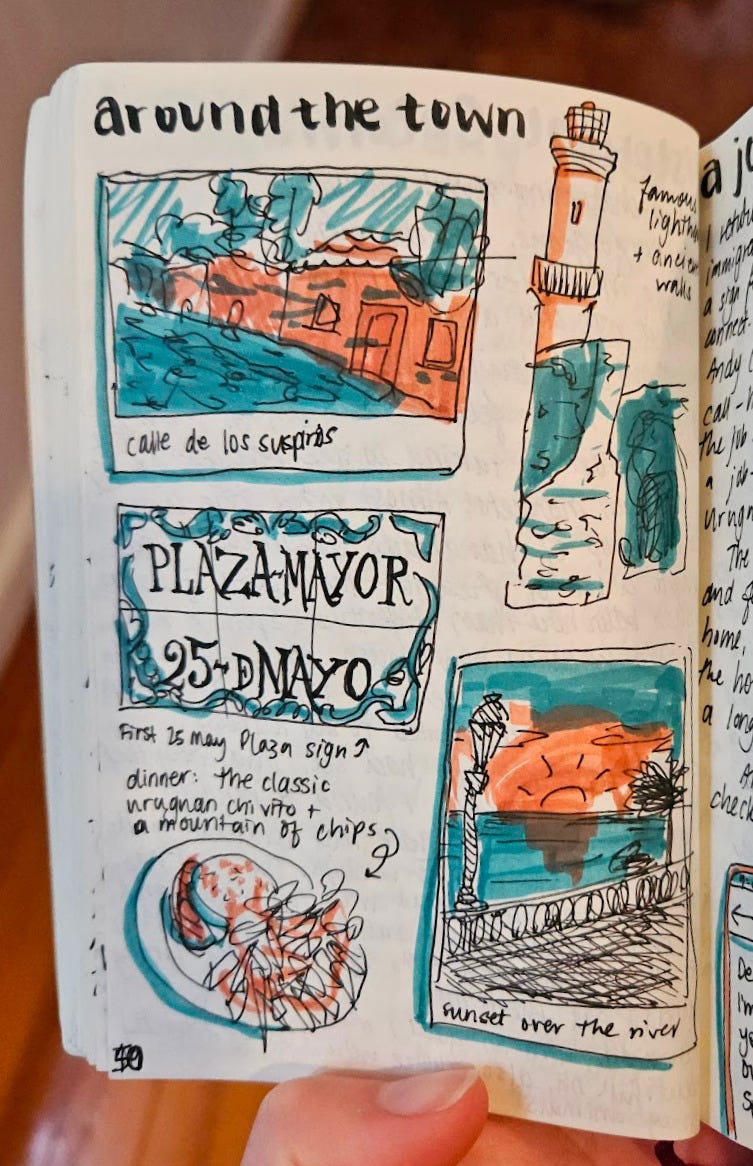 around the town
famous
+ ancient
walls
calle de los suspiros
PLAZA-MAYOR
25-DMAYO
First 25 may Plaza sign
dinner: the classic
urugnan chivito +
a mountain of chips
sunset over the river
50
a jo
immigra
a sign
connect
Andy
call-
the job
a job
urugn
The
and
home,
the ho
a long
check
De
Im
yo